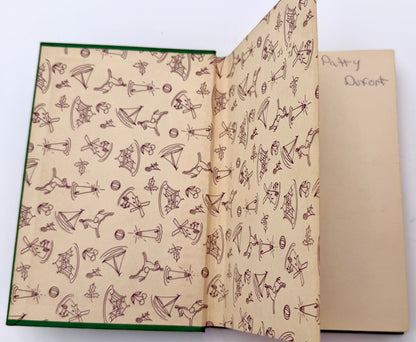 Patty
Dufort